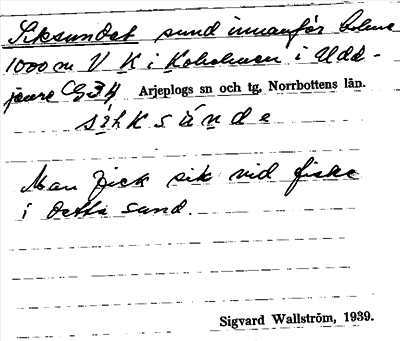 Siksundet sund innanför holme
1000 m V K i Kobholmen i Udd-
jaure G34 Arjeplogs sn och tg, Norrbottens län.
sikksände
Man fick sik vid fiske
i detta sund.
Sigvard Wallström, 1939.